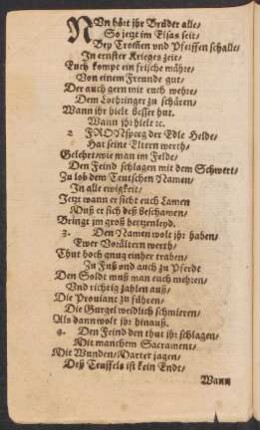 NUn hört jhr Brüder alle/
So jetzt im Elsas seit/
Bey Trommen und Pfeiffen schalle/
In ernster Krieges zeit/
Euch kompt ein frische mähre/
Von einem Freunde gut/
Der auch gern mit euch wehre/
Dem Lothringer zu schären/
Wann ihr hielt besser hut.
Wann jhr hielt ꝛc.
2 FRONsperg der Edle Helde/
Hat seine Eltern werth/
Gelehrt/wie man im Felde/
Den Feind schlagen mit dem Schwert/
Zu lob dem Teutschen Namen/
In alle ewigkeit/
Jetzt wann er sicht euch Lamen
Muß er sich deß beschamen/
Bringt jm groß hertzenleyd.
3. Den Namen wolt jhr haben/
Ewer Vorältern werth/
Thut hoch gnug einher traben/
Zu Fuß und auch zu Pferdt
Den Soldt muß man euch mehren/
Und richtig zahlen auß/
Die Proviant zu führen/
Die Gurgel weidlich schmieren/
Als dann wolt jhr hinauß.
4. Den Feind den thut jhr schlagen/
Mit manchem Sacrament/
Mit Wunden/Marter jagen/
Deß Teuffels ist kein Endt/
Wann